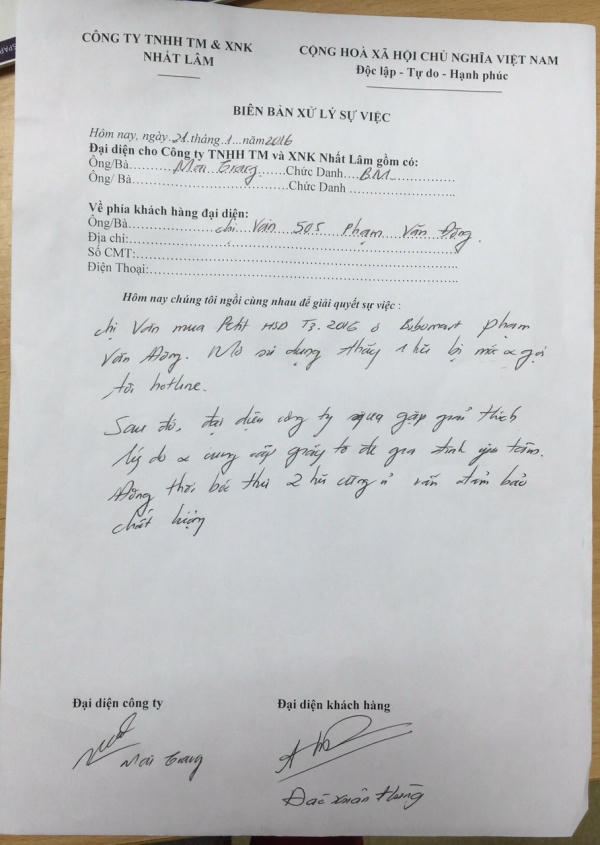 CÔNG TY TNHH TM & XNK
NHẤT LÂM
CỘNG HOÀ XÃ HỘI CHỦ NGHĨA VIỆT NAM
Độc lập - Tự do - Hạnh phúc
BIÊN BẢN XỬ LÝ SỰ VIỆC
Hôm nay, ngày 21.tháng.1...năm 2016
Đại diện cho Công ty TNHH TM và XNK Nhất Lâm gồm có:
Ông/Bà Mai Trang Chức Danh BM
Ông/ Bà Chức Danh
Về phía khách hàng đại diện:
Ông/Bà chị Vân 505 Phạm Văn Đồng.
Địa chỉ:
Số CMT:
Điện Thoại:
Hôm nay chúng tôi ngồi cùng nhau để giải quyết sự việc :
chị Vân mua Petit HSD T3.2016 ở Bibomart phạm
Văn Đồng. Mở sử dụng thấy 1 hũ bị mốc & gọi
tới hotline.
Sau đó, đại diện công ty qua gặp giải thích
lý do & cung cấp giấy tờ để gia đình yên tâm.
Đồng thời bóc thử 2 hũ cùng vẫn đảm bảo
chất lượng
Đại diện công ty
Đại diện khách hàng
Mai Trang
Đào Xuân Hùng